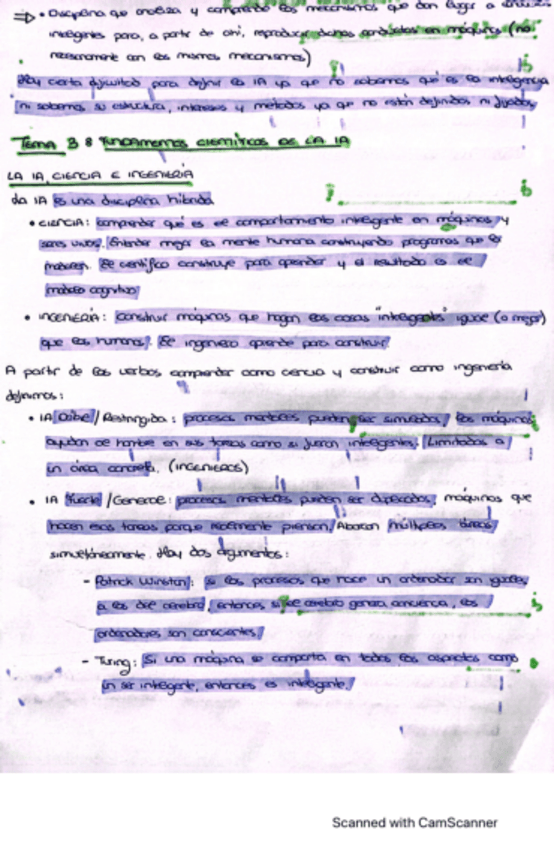 ⇒ • Disciplina que analiza y comprende los mecanismos que dan lugar a
inteligentes para, a partir de ahí, reproducir dichas conductas en máquinas (no
necesariamente con los mismos mecanismos)
Hay cierta dificultad para definir la IA ya que no sabemos qué es la inteligencia
ni sabemos su estructura, intereses y métodos ya que no están definidos ni fijados
TEMA 3: FUNDAMENTOS CIENTÍFICOS DE LA IA
LA IA, CIENCIA E INGENIERÍA
La IA es una disciplina híbrida
• CIENCIA: comprender qué es el comportamiento inteligente en máquinas y
seres vivos. Entender mejor la mente humana construyendo programas que la
modelen. El científico construye para aprender y el resultado es el
modelo cognitivo
• INGENIERÍA: construir máquinas que hagan las cosas "inteligentes" igual (o mejor)
que los humanos. El ingeniero aprende para construir
A partir de los verbos comprender como ciencia y construir como ingeniería
definimos:
• IA Débil / Restringida: procesos mentales pueden ser simulados, las máquinas
ayudan al hombre en sus tareas como si fueran inteligentes. Limitados a
un área concreta. (INGENIEROS)
• IA Fuerte / General: procesos mentales pueden ser duplicados, máquinas que
hacen esas tareas porque realmente piensan. Abarcan múltiples áreas
simultáneamente. Hay dos argumentos:
- Patrick Winston: si los procesos que hace un ordenador son iguales
a los del cerebro, entonces si el cerebro genera conciencia, los
ordenadores son conscientes
- Turing: Si una máquina se comporta en todos los aspectos como
un ser inteligente, entonces es inteligente.
Scanned with CamScanner